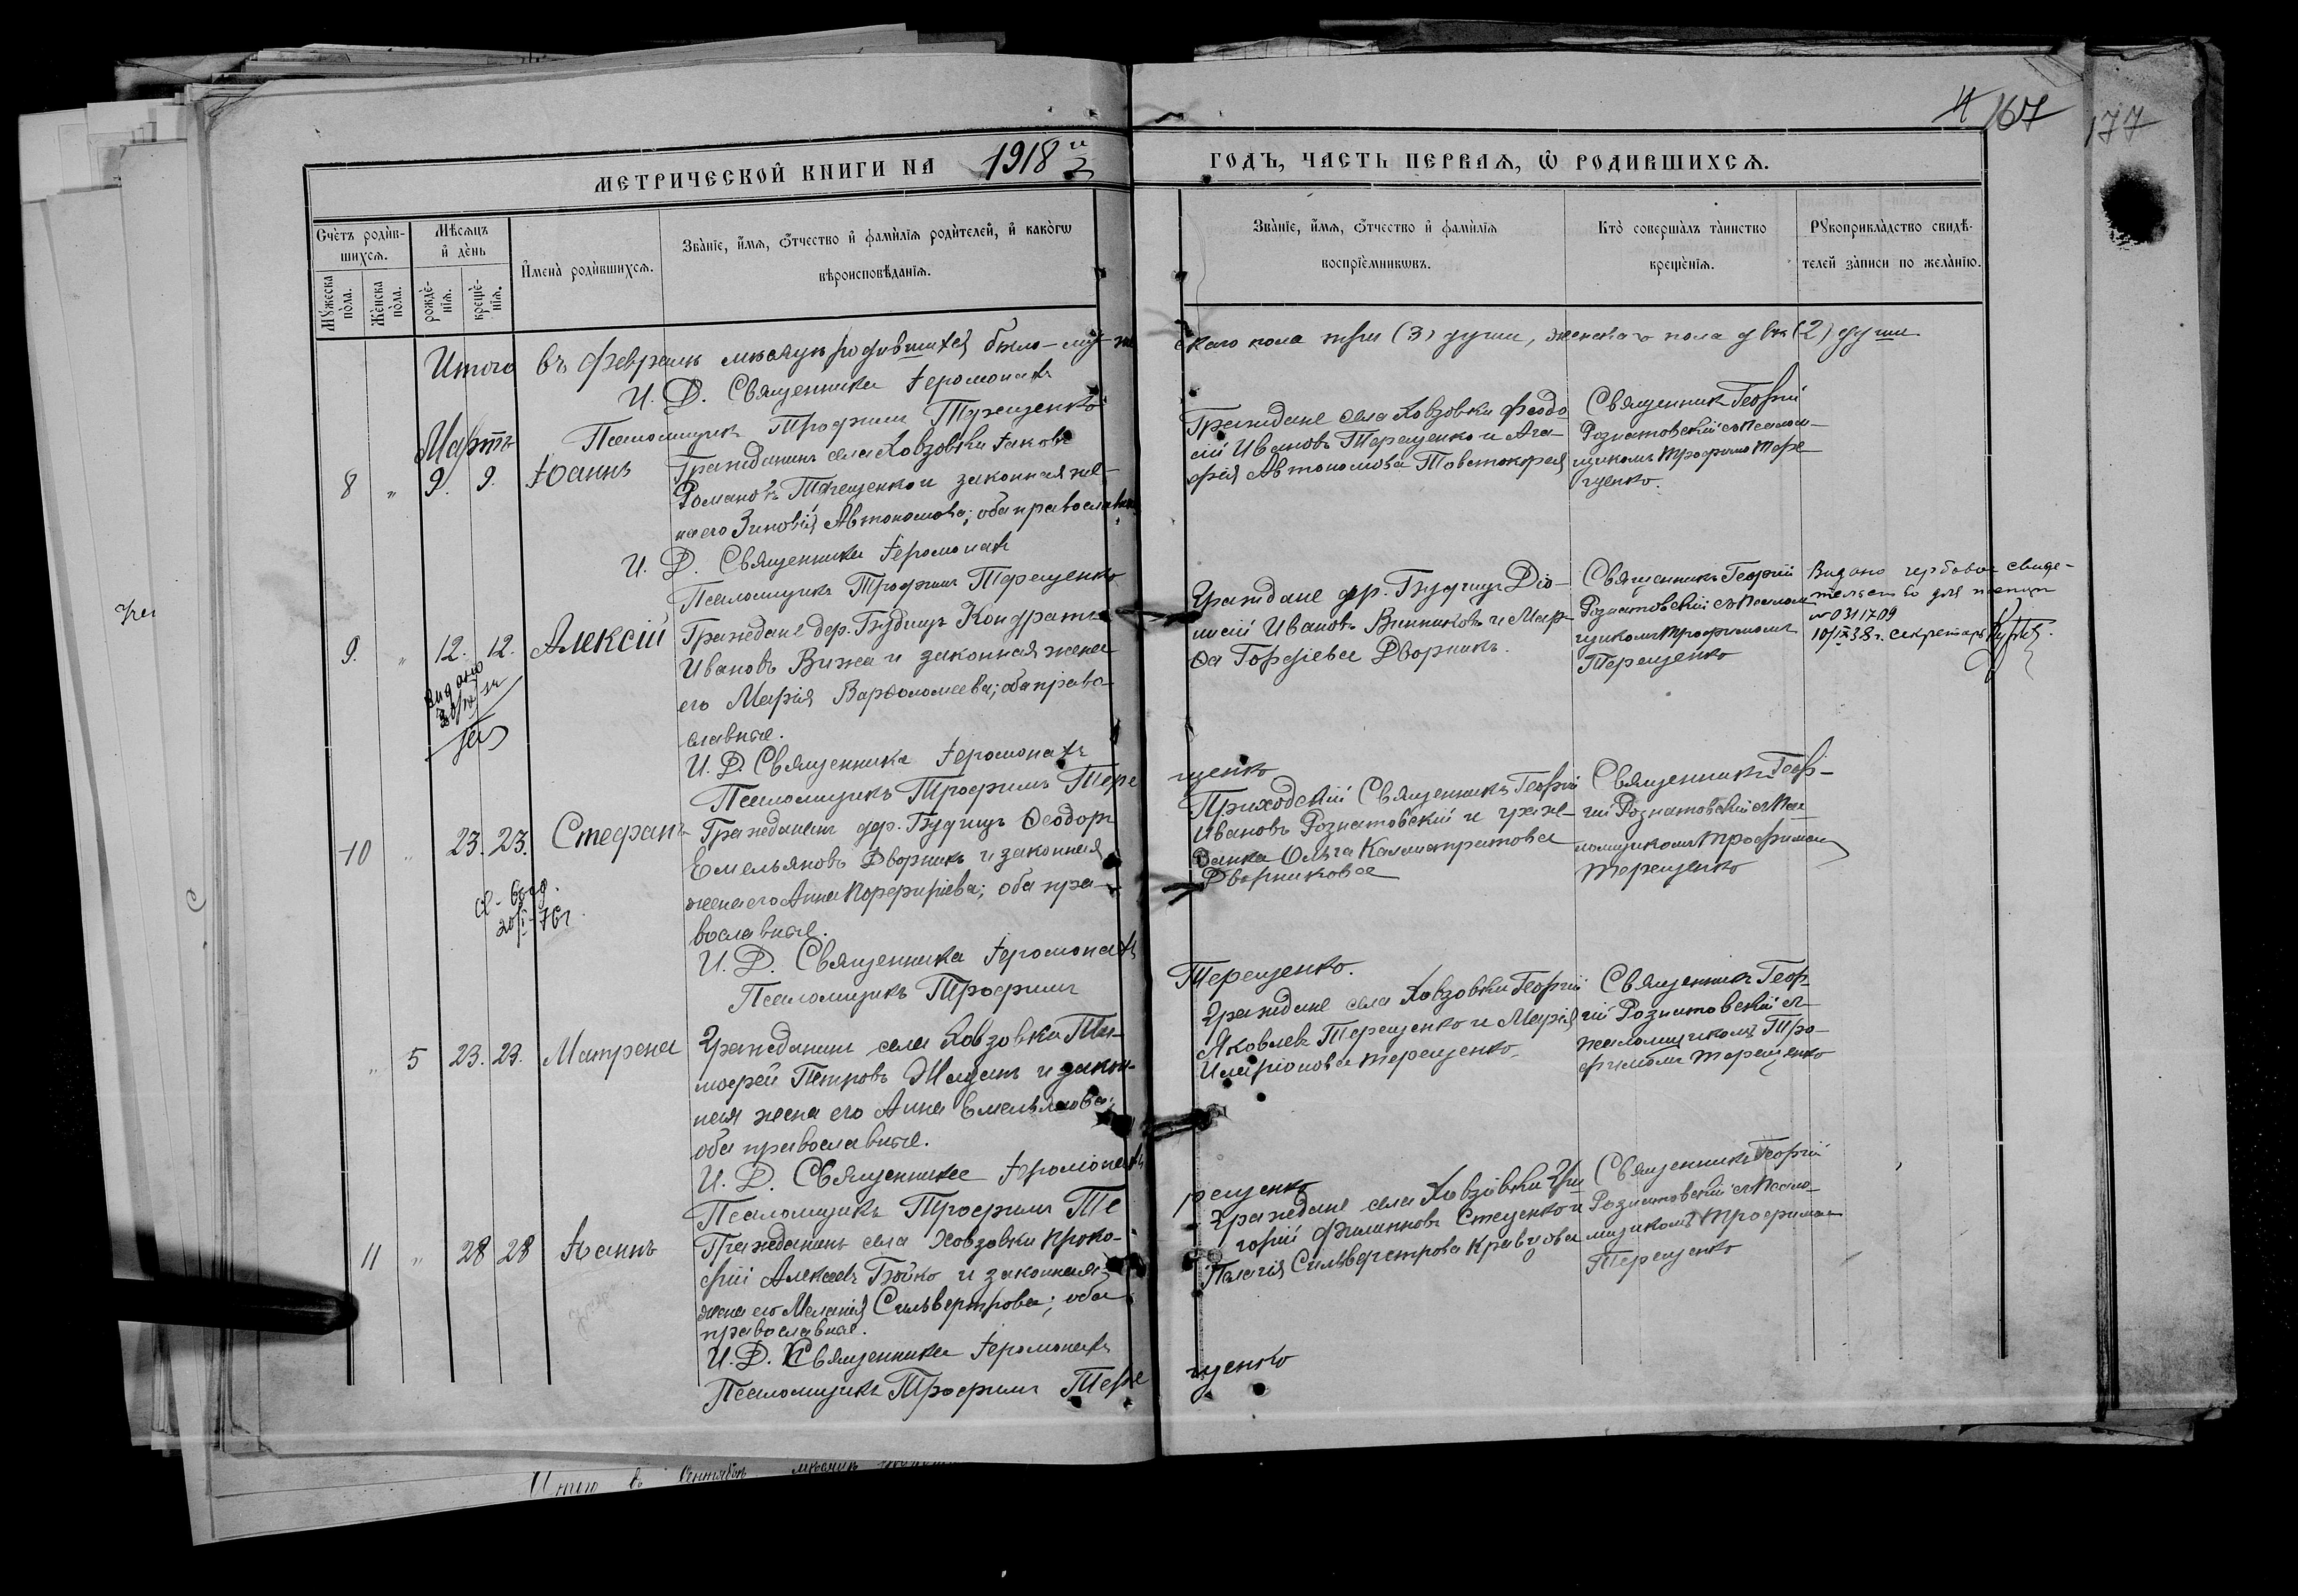 4 167
177
МЕТРИЧЕСКОЙ КНИГИ НА 1918 й ГОДЪ, ЧАСТЬ ПЕРВАЯ, Ѡ РОДИВШИХСЯ.
Счетъ родившихся.
Мужеска пола.
Женска пола.
Мѣсяцъ и день
рожденія.
крещенія.
Имена родившихся.
Званіе, имя, отчество и фамилія родителей, и какогѡ
вѣроисповѣданія.
Званіе, имя, отчество и фамилія
воспріемникѡвъ.
Кто совершалъ таинство
крещенія.
Рукоприкладство свидѣ-
телей записи по желанію.
Итого въ февралѣ мѣсяцѣ родившихся было - муже
скаго пола три (3) души, женскаго пола двѣ (2) души
И. Д. Священника Іеромонахъ
Псаломщикъ Трофимъ Терещенко
Мартъ
8 " 9. 9. Іоаннъ
Гражданинъ села Ховзовки Іаковъ
Романовъ Терещенко и законная же-
на его Зиновія Автономова; оба православные
Граждане села Ховзовки Феодо
сій Ивановъ Терещенко и Ага-
фія Автономова Товстокорая
Священник Георгій
Розматовскій съ Псалом-
щикомъ Трофимо Тере
щенко.
И. Д. Священника Іеромонах
Псаломщикъ Трофимъ Терещенко
9. " 12. 12. Алексій
Граждане дер. Будищъ Кондратъ
Ивановъ Вижа и законная жена
его Марія Варѳоломеева; оба право-
славные.
Граждане дер. Будищъ Діо-
нисій Ивановъ Винниковъ и Мар-
ѳа Горгіева Дворникъ.
Священникъ Георгій
Розматовскій съ Псалом
щикомъ Трофимомъ
Терещенко
Видано гербовое свиде-
тельство для
№ 0311709
10/IX 38 г. секретарь
Видано
И. Д. Священника Іеромонахъ
Псаломщикъ Трофимъ Тере
щенко
10 " 23. 23. Стефанъ
Гражданинъ дер. Будищъ Ѳеодоръ
Емельяновъ Дворникъ и законная
жена его Анна Порфиріева; оба пра-
вославные.
Приходскій Священникъ Георгій
Ивановъ Розматовскій и граж-
данка Ольга Каллистратова
Дворникова
Священникъ Геор-
гій Розматовскій съ Пса
ломщикомъ Трофимом
Терещенко
20/I-76г.
И. Д. Священника Іеромонахъ
Псаломщикъ Трофимъ
Терещенко.
" 5 23. 23. Матрена
Гражданинъ села Ховзовки Ти-
мофей Петровъ и закон-
ная жена его Анна Емельянова;
оба православные.
Граждане села Ховзовки Георгій
Яковлевъ Терещенко и Марія
Иларіонова Терещенко
Священникъ Геор-
гій Розматовскій съ
псаломщикомъ Тро-
фимомъ Терещенко
И. Д. Священника Іеромонахъ
Псаломщикъ Трофимъ Те
рещенко
11 " 28 28 Іоаннъ
Гражданинъ села Ховзовки Проко-
фій Алексѣевъ Бойко и законная
жена его Меланія Сильвестрова; оба
православные.
Граждане села Ховзовки Гри
горій Филипповъ Стеценко и
Пелагія Сильверстрова Кравцова
Священникъ Георгій
Розматовскій съ Псало-
мщикомъ Трофимом
Терещенко
И. Д. Священника Іеромонахъ
Псаломщикъ Трофимъ Тере
щенко
Итого въ Сентябрѣ мѣсяцѣ